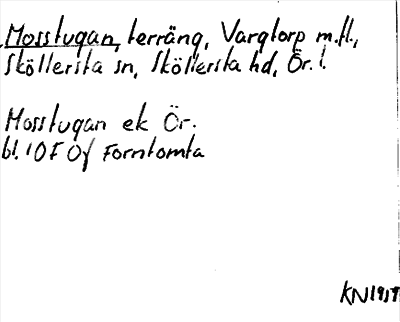 Mosstugan, terräng, Vargtorp m.fl.,
Sköllersta sn, Sköllersta hd, Ör. l.
Mosstugan ek Ör.
bl. 10F 0f Forntomta
KN1919